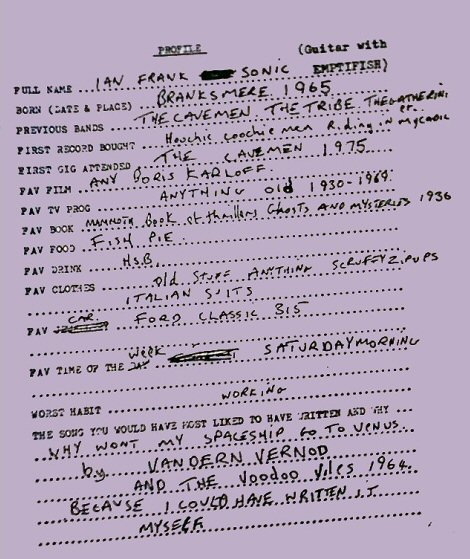 PROFILE
(Guitar with
EMPTIFISH)
FULL NAME ... IAN FRANK SONIC
BORN (DATE & PLACE) ... BRANKSMERE 1965
PREVIOUS BANDS ... THE CAVEMEN THE TRIBE THE GATHERING
FIRST RECORD BOUGHT ... Hoochie coochie men Riding in
FIRST GIG ATTENDED ... THE CAVEMEN 1975
FAV FILM ... ANY BORIS KARLOFF
FAV TV PROG ... ANYTHING Old 1930-1969
FAV BOOK ... MAMMOTH Book of thrillers Ghosts AND MYSTERIES 1936
FAV FOOD ... FISH PIE
FAV DRINK ... H.S.B.
FAV CLOTHES ... Old STUFF ANYTHING SCRUFFY ZIPUPS
ITALIAN SUITS
FAV CAR ... FORD CLASSIC 315
FAV TIME OF THE WEEK ... SATURDAY MORNING
WORST HABIT ... WORKING
THE SONG YOU WOULD HAVE MOST LIKED TO HAVE WRITTEN AND WHY ...
WHY WONT MY SPACESHIP GO TO VENUS
by VANDERN VERNOD
AND THE VOODOO Viles 1964
BECAUSE I COULD HAVE WRITTEN IT
MYSELF